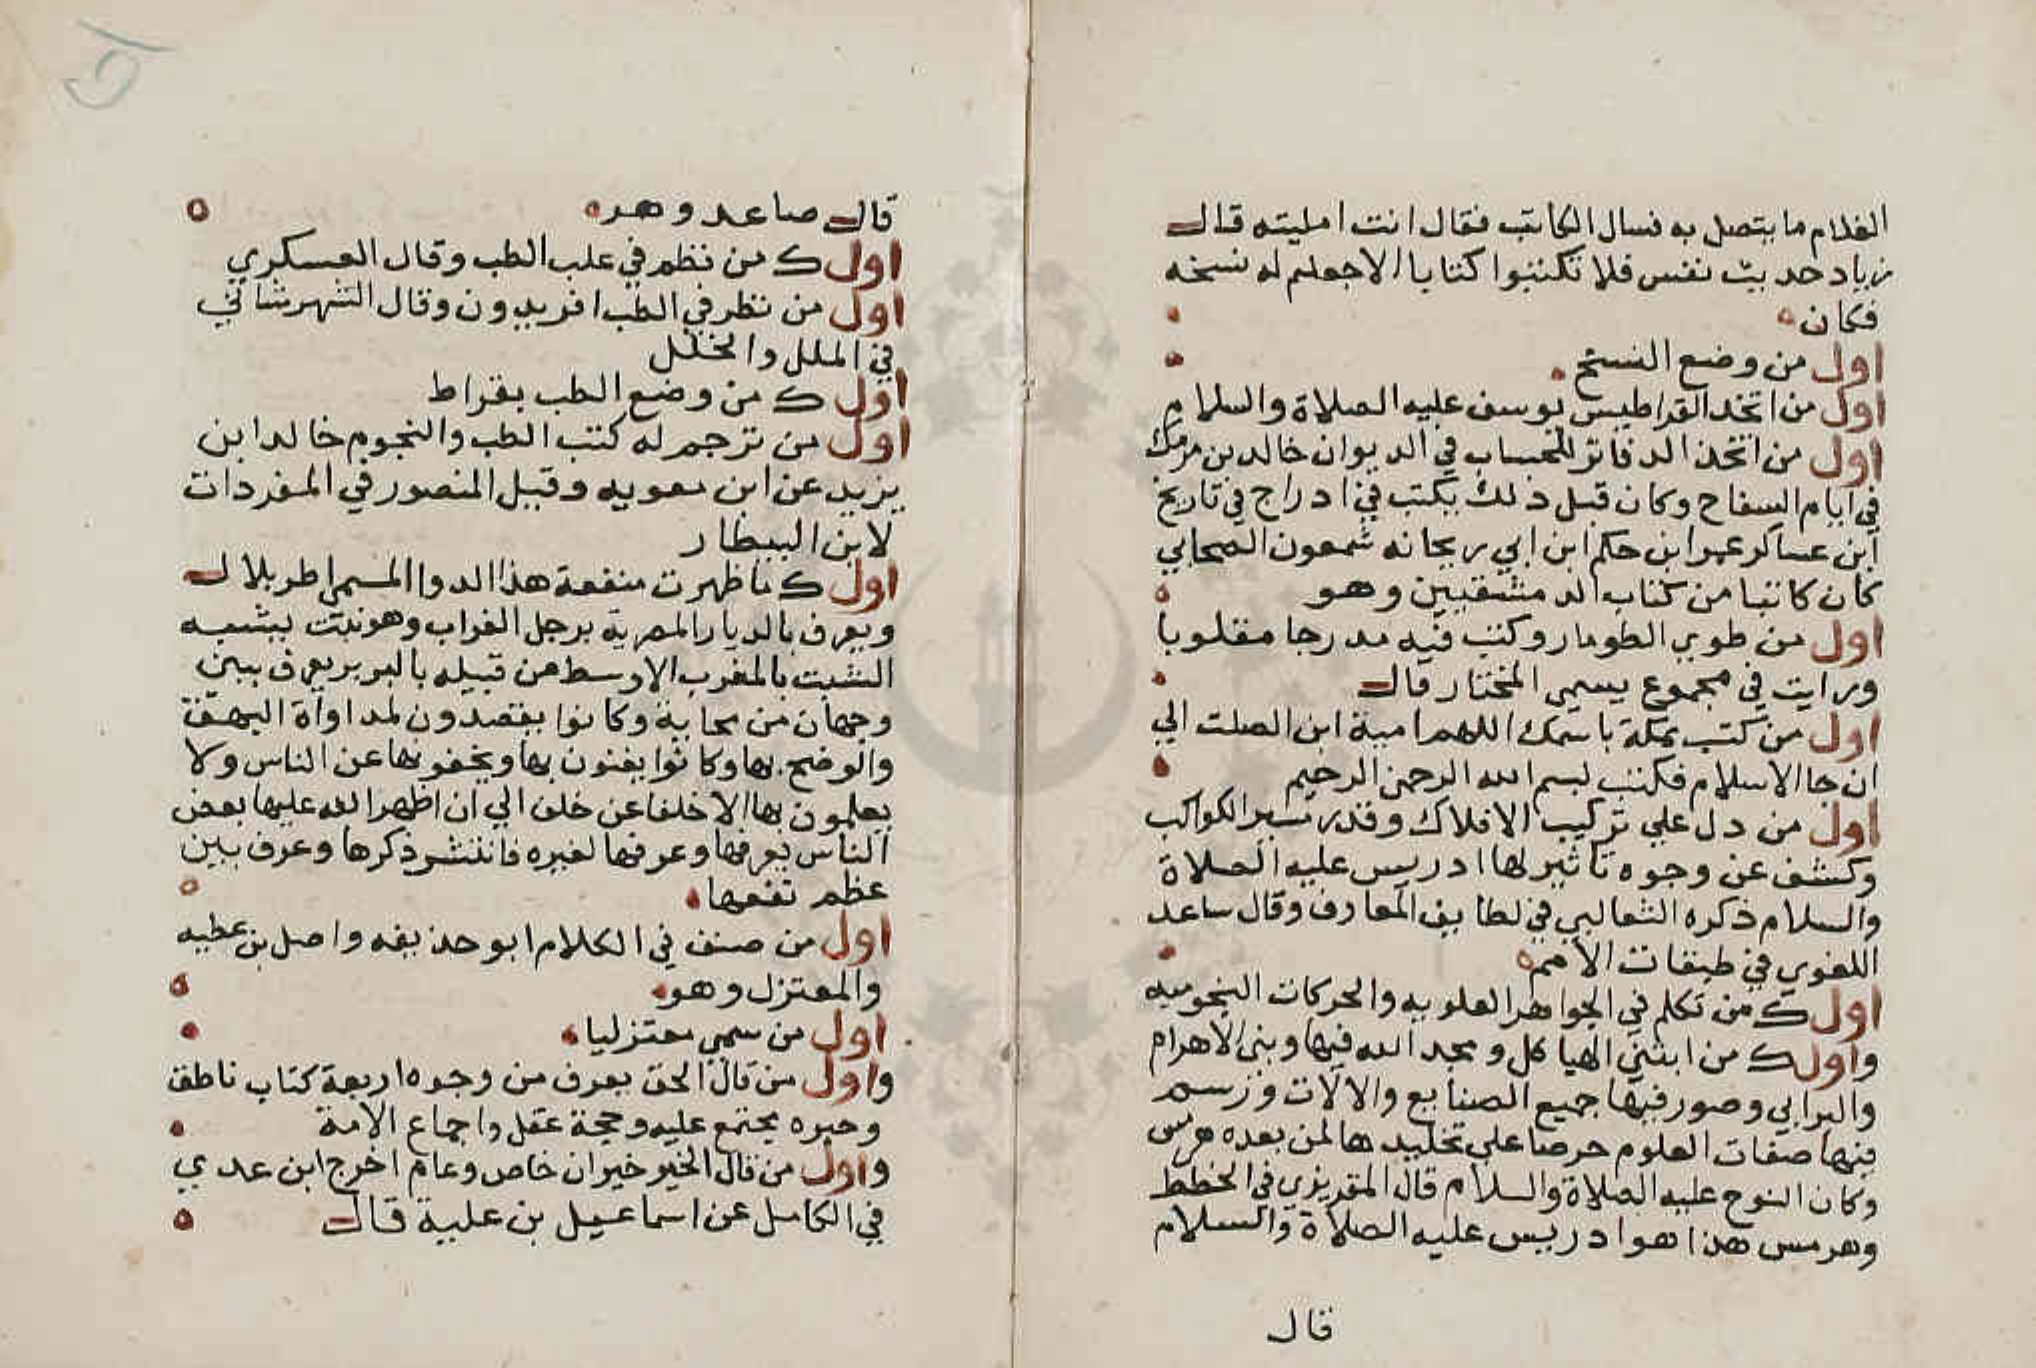 الغلام ما يتصل به فسال الكاتب فقال انت امليته قال
زياد حديث نفس فلا تكتبوا كتابا الا جعلتم له نسخه
فكان
اول من وضع النسخ
اول من اتخذ القراطيس يوسف عليه الصلاة والسلام
اول من اتخذ الدفاتر للحساب في الديوان خالد بن برمك
في ايام السفاح وكان قبل ذلك يكتب في ادراج في تاريخ
ابن عساكر عمر ابن حكم ابن ابي ريحانه شمعون الصحابي
كان كاتبا من كتاب الدمشقيين وهو
اول من طوي الطومار وكتب فيه مدرجا مقلوبا
ورايت في مجموع يسمي المختار قال
اول من كتب بمكة باسمك اللهم امية ابن الصلت الي
ان جا الاسلام فكتب بسم الله الرحمن الرحيم
اول من دل علي تركيب الافلاك وقدر مسير الكواكب
وكشف عن وجوه تاثيرلها ادريس عليه الصلاة
والسلام ذكره الثعالبي في لطايف المعارف وقال ساعد
اللغوي في طبقات الامم
اول ك من تكلم في الجواهر العلويه والحركات النجوميه
واول ك من ابتني الهياكل ومجد الله فيها وبني الاهرام
والبرابي وصور فيها جميع الصنايع والالات ورسم
فيها صفات العلوم حرصا علي تخليدها لمن بعده هرمس
وكان النوح عليه الصلاة والسلام قال المقريزي في الخطط
وهرمس هذا هو ادريس عليه الصلاة والسلام
قال
قال صاعد وهر
اول ك من نظم في علب الطب وقال العسكري
اول من نظر في الطب افريدون وقال الشهرشاني
في الملل والنحلل
اول ك من وضع الطب بقراط
اول من ترجم له كتب الطب والنجوم خالد ابن
يزيد عن ابن معويه وقيل المنصور في المفردات
لابن البيطار
اول ك ما ظهرت منفعة هذا الدوا المسمي اطريلال
ويعرف بالديار المصرية برجل الغراب وهو نبت يشبه
الشبت بالمغرب الاوسط من قبيله بالبربر يعرف ببني
وجهان من بجاية وكانوا يقصدون لمداواة البهق
والوضح بها وكانوا يضنون بها ويخفونها عن الناس ولا
يعلمون بها الا خلفا عن خلف الي ان اظهر الله عليها بعض
الناس يعرفها وعرفها لغيره فانتشر ذكرها وعرف بين
عظم نفعها
اول من صنف في الكلام ابو حذيفه واصل بن عطيه
والمعتزل وهو
اول من سمي معتزليا
واول من قال الحق يعرف من وجوه اربعة كتاب ناطق
وخبره يجتمع عليه وحجة عقل واجماع الامة
واول من قال الخبر خبران خاص وعام اخرج ابن عدي
في الكامل عن اسماعيل بن علية قال